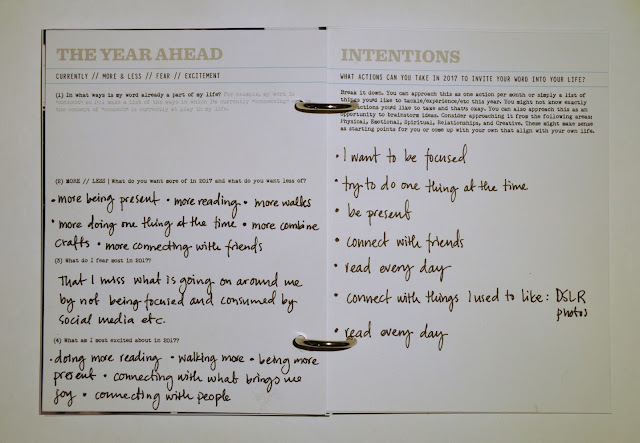 THE YEAR AHEAD
CURRENTLY // MORE & LESS // FEAR // EXCITEMENT
(1) In what ways is my word already a part of my life?
(2) MORE // LESS | What do you want more of in 2017 and what do you want less of?
• more being present • more reading • more walks
• more doing one thing at the time • more combine
crafts • more connecting with friends
(3) What do I fear most in 2017?
That I miss what is going on around me
by not being focused and consumed by
social media etc.
(4) What am I most excited about in 2017?
• doing more reading • walking more • being more
present • connecting with what brings me
joy • connecting with people
INTENTIONS
WHAT ACTIONS CAN YOU TAKE IN 2017 TO INVITE YOUR WORD INTO YOUR LIFE?
Break it down. You can approach this as one action per month or simply a list of
things you'd like to tackle/experience/etc this year. You might not know exactly
actions you'd like to take and that's okay. You can also approach this as an
opportunity to brainstorm ideas. Consider approaching it from the following areas:
Physical, Emotional, Spiritual, Relationships, and Creative. These might make sense
as starting points for you or come up with your own that align with your own life.
• I want to be focused
• try to do one thing at the time
• be present
• connect with friends
• read every day
• connect with things I used to like: DSLR
photos
• read every day